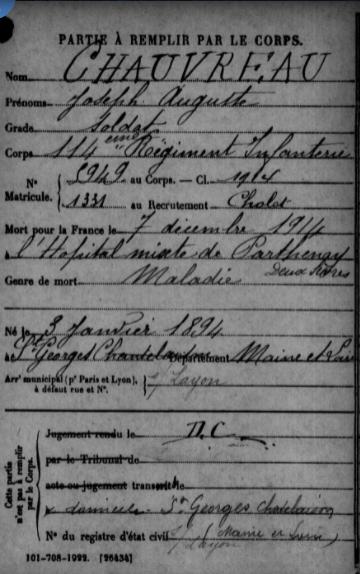 PARTIE À REMPLIR PAR LE CORPS.
Nom CHAUVREAU
Prénoms Joseph Auguste
Grade Soldat
Corps 114 eme Régiment Infanterie
N° Matricule. { 5949 au Corps. — Cl. 1914
1331 au Recrutement Cholet
Mort pour la France le 7 décembre 1914
à l'Hopital mixte de Parthenay
Deux Sèvres
Genre de mort Maladie
Né le 3 Janvier 1894
à St Georges Chatelaison Département Maine et Loire
Arrt municipal (pr Paris et Lyon), à défaut rue et N°. s/ Layon
Cette partie n'est pas à remplir par le Corps.
Jugement rendu le D.C
par le Tribunal de
acte ou jugement transcrit le
à domicile St Georges Chatelaison
N° du registre d'état civil s/ Layon (Maine et Loire)
101-708-1922. [26434]